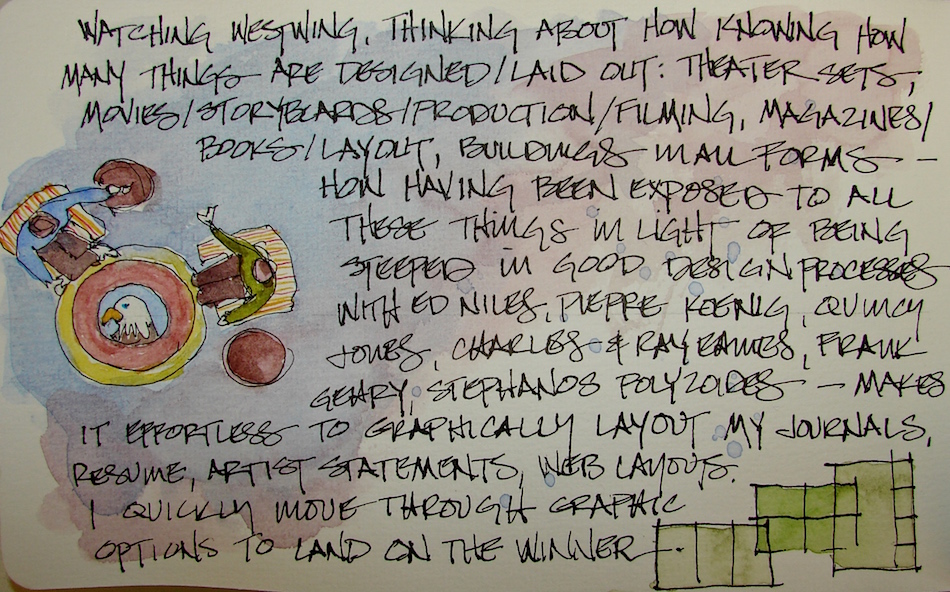 WATCHING WESTWING, THINKING ABOUT HOW KNOWING HOW
MANY THINGS ARE DESIGNED/LAID OUT: THEATER SETS,
MOVIES/STORYBOARDS/PRODUCTION/FILMING, MAGAZINES/
BOOKS/LAYOUT, BUILDINGS IN ALL FORMS —
HOW HAVING BEEN EXPOSED TO ALL
THESE THINGS IN LIGHT OF BEING
STEEPED IN GOOD DESIGN PROCESSES
WITH ED NILES, PIERRE KOENIG, QUINCY
JONES, CHARLES & RAY EAMES, FRANK
GEHRY, STEPHANOS POLYZOIDES — MAKES
IT EFFORTLESS TO GRAPHICALLY LAYOUT MY JOURNALS,
RESUME, ARTIST STATEMENTS, WEB LAYOUTS.
I QUICKLY MOVE THROUGH GRAPHIC
OPTIONS TO LAND ON THE WINNER —.